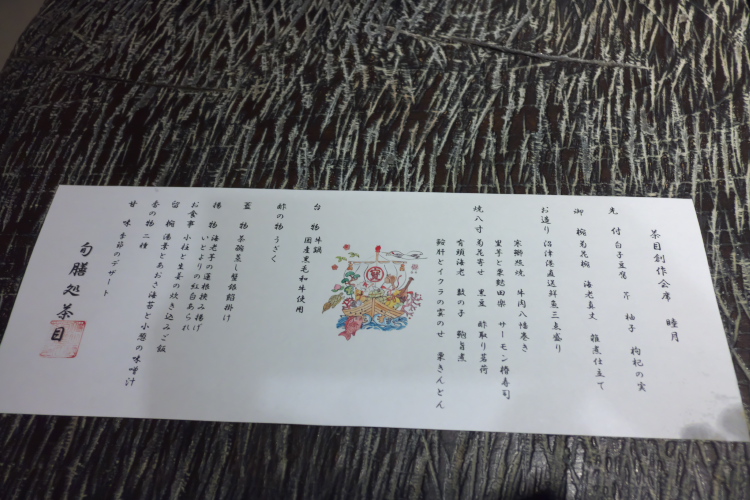 茶目創作会席 睦月
先 付 白子豆腐 芹 柚子 枸杞の実
御 椀 菊花椀 海老真丈 雑煮仕立て
お造り 沼津港直送鮮魚三点盛り
寒鰤照焼 牛肉八幡巻き
里芋と粟麩田楽 サーモン椿寿司
焼八寸 菊花寄せ 黒豆 酢取り茗荷
有頭海老 数の子 鞠旨煮
鮟肝とイクラの雲のせ 栗きんとん
台 物 牛鍋
国産黒毛和牛使用
酢の物 うざく
蓋 物 茶碗蒸し蟹銀餡掛け
揚 物 海老芋の蓮根挟み揚げ
いとよりの紅白あられ
お食事 小柱と生姜の炊き込みご飯
留 椀 湯葉とあおさ海苔と小葱の味噌汁
香の物 二種
甘 味 季節のデザート
旬膳処茶目